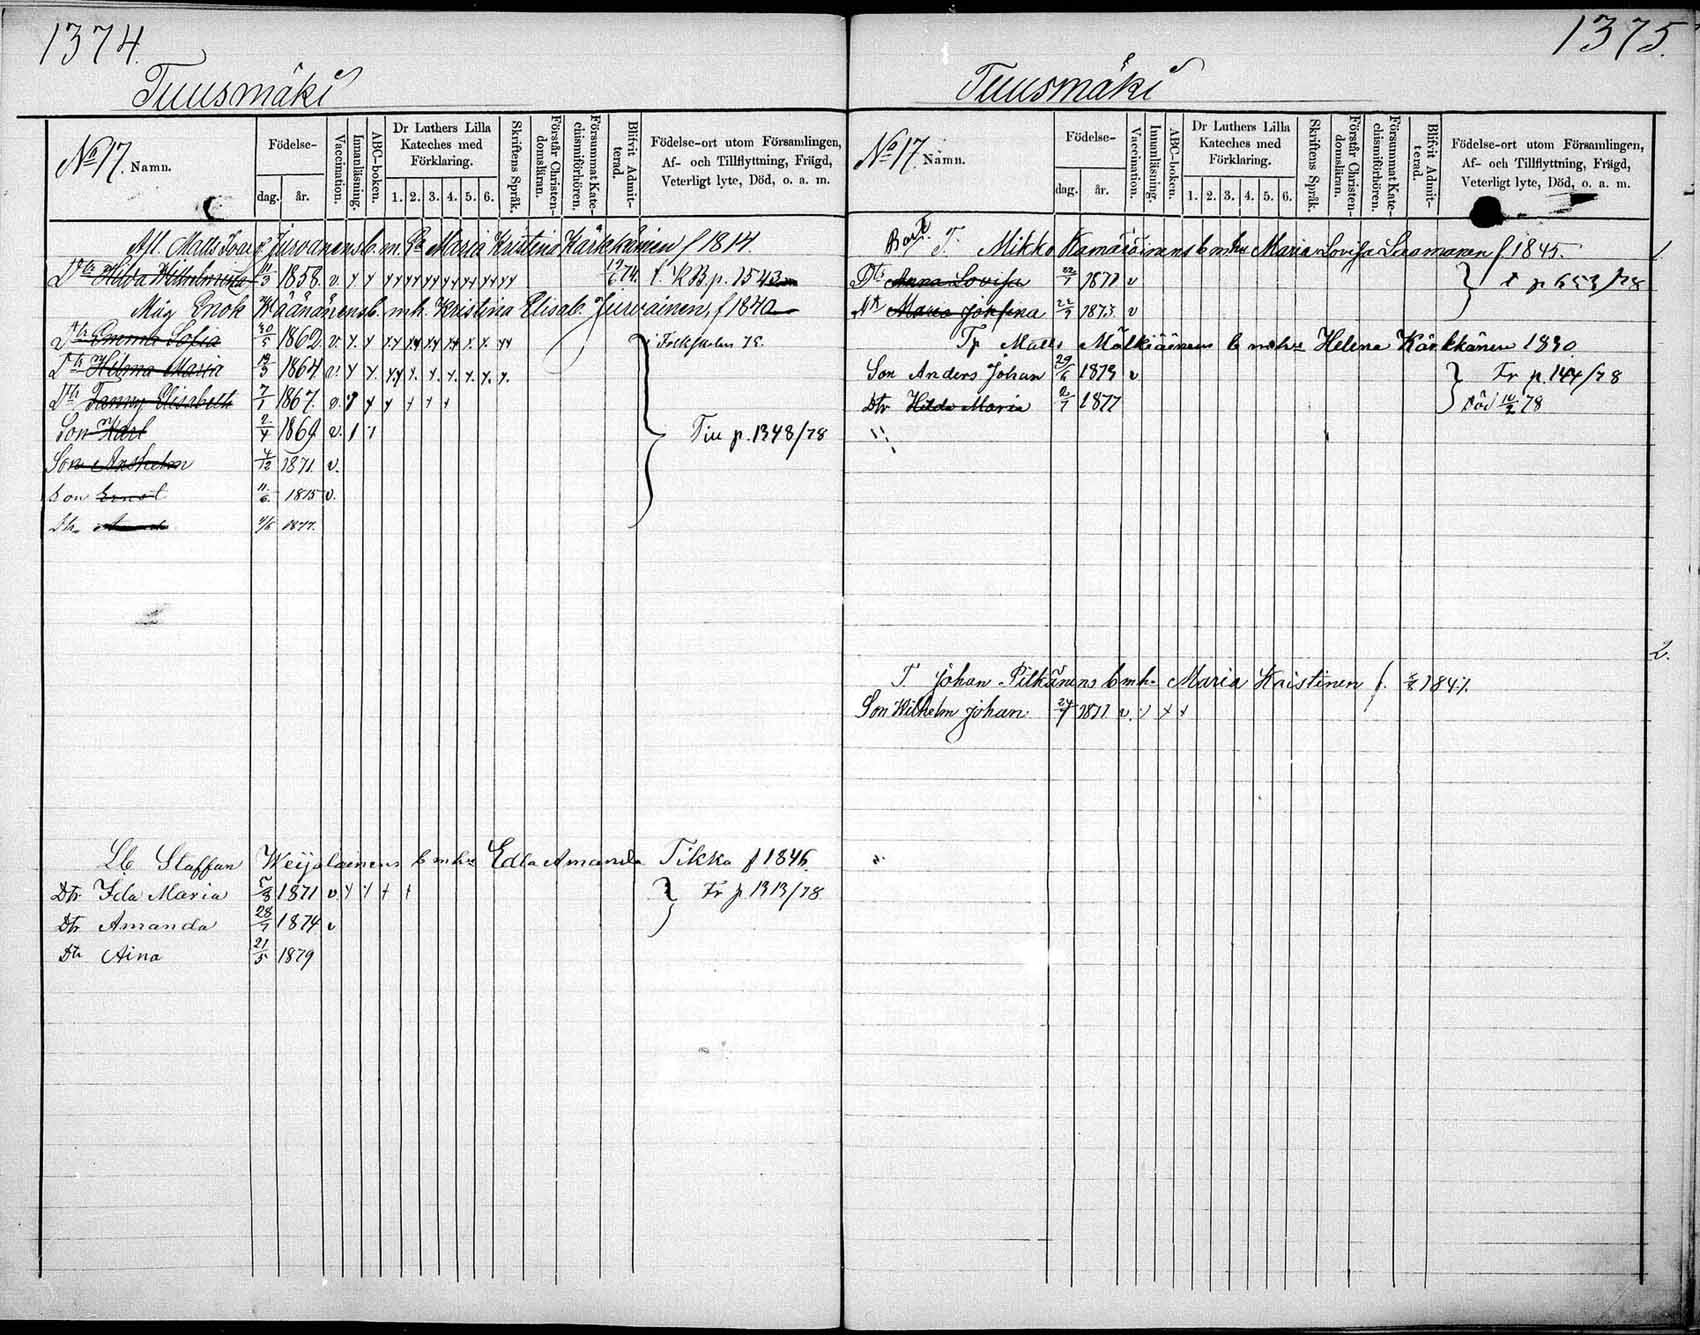 1374.
Tuusmäki
No 17. Namn.
Födelse-
dag. år.
Vaccination.
Innanläsning.
ABC-boken.
Dr Luthers Lilla Kateches med Förklaring.
1. 2. 3. 4. 5. 6.
Skriftens Språk.
Förstår Christendomsläran.
Försummat Katechismiförhören.
Blifvit Admitterad.
Födelse-ort utom Församlingen, Af- och Tillflyttning, Frägd, Veterligt lyte, Död, o. a. m.
Matts Maria Kristina Kärkkäinen f 1814.
Dtr Hilda 1858. v. K B. p. 1543
Måg Enok Wäänänens b. m. h. Kristina Elisab. Jurvainen, f 1840
Dtr Emma Sofia 30/5 1862. v. Folkskolan 75.
Dtr Hilma Maria 13/3 1864 v.
Dtr Fanny Elisabeth 7/1 1867. v.
Son Karl 2/4 1869 v. Till p. 1348/78
Son Anshelm 4/12 1871. v.
Son Ernst 11/6 1875 v.
Dtr 1877.
Lb Staffan Weijalainens b m h Edla Amanda Tikka f 1846.
Dtr Ida Maria 5/8 1871 v. Fr p 1313/78
Dtr Amanda 28/7 1874 v
Dtr Aina 21/5 1879
1375.
Tuusmäki
No 17. Namn.
Födelse-
dag. år.
Vaccination.
Innanläsning.
ABC-boken.
Dr Luthers Lilla Kateches med Förklaring.
1. 2. 3. 4. 5. 6.
Skriftens Språk.
Förstår Christendomsläran.
Försummat Katechismiförhören.
Blifvit Admitterad.
Födelse-ort utom Församlingen, Af- och Tillflyttning, Frägd, Veterligt lyte, Död, o. a. m.
Bort. T. Mikko Kamäräinens b mhu Maria Lovisa f 1845. 1.
Dtr Anna Lovisa v t p 653/78
Dtr Maria Josefina 1875 v
Tp Matts Mälkiäinens b mhu Helena Kärkkänen 1830
Son Anders Johan 29/6 1873 v Fr p. 144/78
Dtr Hilda Maria 1877 Död 78
2.
T Johan Pitkänens b mh Maria Kristinen f.
Son Wilhelm Johan 1871 v.